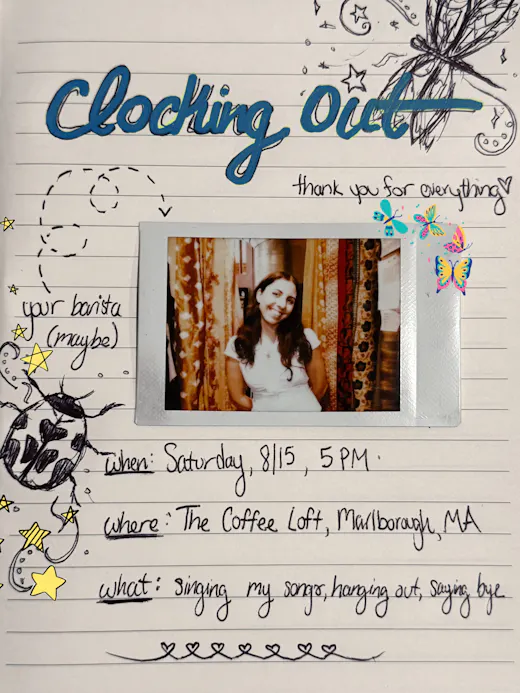 Clocking Out
thank you for everything♡
your barista
(maybe)
when: Saturday, 8/15, 5 PM.
where: The Coffee Loft, Marlborough, MA
what: singing my songs, hanging out, saying bye